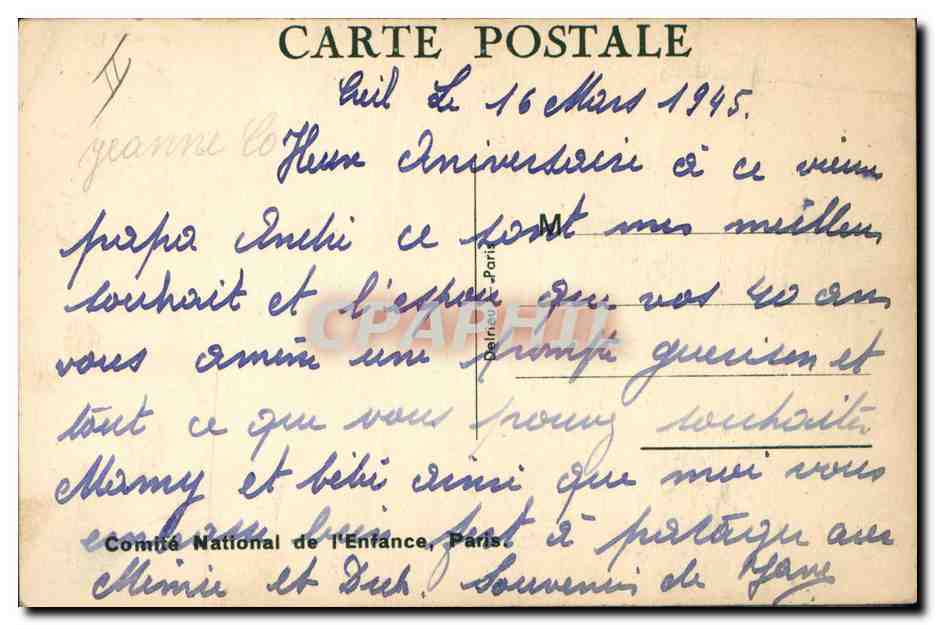 CARTE POSTALE
Creil Le 16 Mars 1945.
jeanne Co
Heure Aniversaire à ce vieux
papa André ce sont mes meilleurs
M
souhait et l'espoir que vos 40 ans
Delrieu - Paris
CPAPHIL
vous amène une prompte guerison et
tout ce que vous pouvez souhaiter
Mamy et bébé ainsi que moi vous
embrasse bien fort à patager avec
Comité National de l'Enfance, Paris.
Mimie et Souvenir de